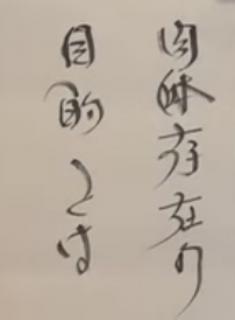 肉躰存在の
目的とは